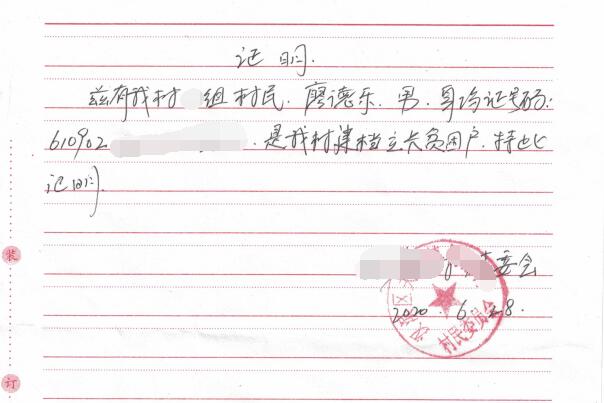 证明.
兹有我村 组村民.廖德乐.男.身份证号码:
610902 .是我村建档立卡贫困户.特此
证明.
委会
2020 6 28.
汉滨区
村民委员会
装
订